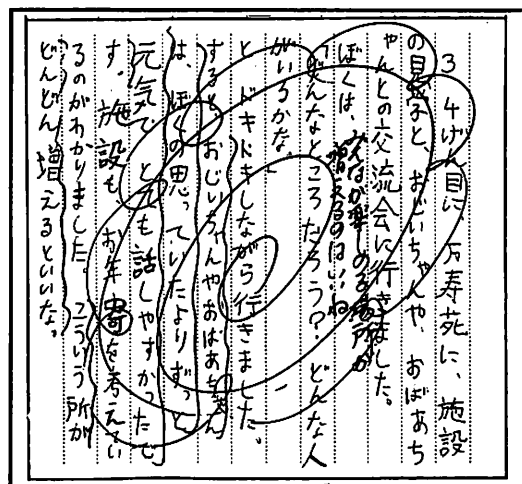 3、4げん目に、万寿苑に、施設
の見学と、おじいちゃんや、おばあち
ゃんとの交流会に行きました。
ぼくは、
みんなが楽しめる場所が
増えるのはいいね
「どんなところだろう?どんな人
がいるかな。」
と、ドキドキしながら行きました。
すると、おじいちゃんやおばあちゃん
は、ぼくの思っていたよりずっと
元気で、とても話しやすかったで
す。施設も、お年寄を考えてい
るのがわかりました。こういう所が
どんどん増えるといいな。